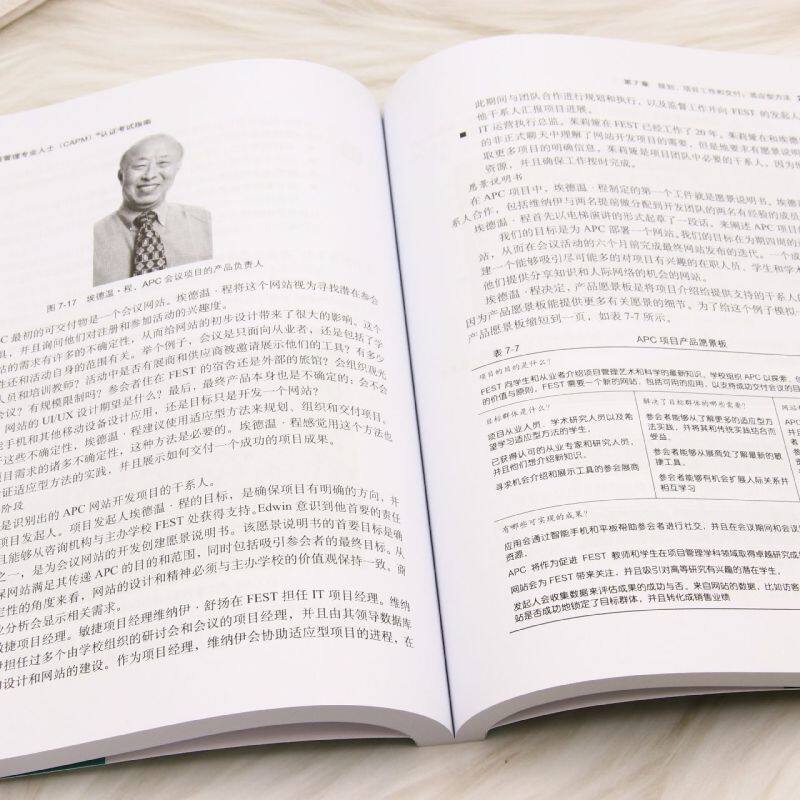 管理专业人士（CAPM）®认证考试指南
图 7-17 埃德温·程，APC 会议项目的产品负责人
C 最初的可交付物是一个会议网站。埃德温·程将这个网站视为寻找潜在参会
具，并且询问他们对注册和参加活动的兴趣度。
站的需求有许多的不确定性，从而给网站的初步设计带来了很大的影响。这个
性还和活动自身的范围有关。举个例子，会议是只面向从业者，还是包括了学
人员和培训教师？活动中是否有展商和供应商被邀请展示他们的工具？有多少
会议？有规模限制吗？参会者住在 FEST 的宿舍还是外部的旅馆？会组织观光
网站的 UI/UX 设计期望是什么？最后，最终产品本身也是不确定的；会不会
能手机和其他移动设备设计应用，还是目标只是开发一个网站？
于这些不确定性，埃德温·程建议使用适应型方法来规划、组织和交付项目。
项目需求的诸多不确定性，这种方法是必要的。埃德温·程感觉用这个方法也
证适应型方法的实践，并且展示如何交付一个成功的项目成果。
阶段
是识别出的 APC 网站开发项目的干系人。
项目发起人。项目发起人埃德温·程的目标，是确保项目有明确的方向，并
且能够从咨询机构与主办学校 FEST 处获得支持。Edwin 意识到他首要的责任
之一，是为会议网站的开发创建愿景说明书。该愿景说明书的首要目标是确
保网站满足其传递 APC 的目的和范围，同时包括吸引参会者的最终目标。从
定性的角度来看，网站的设计和精神必须与主办学校的价值观保持一致。商
业分析会显示相关需求。
敏捷项目经理。敏捷项目经理维纳伊·舒扬在 FEST 担任 IT 项目经理。维纳
伊担任过多个由学校组织的研讨会和会议的项目经理，并且由其领导数据库
的设计和网站的建设。作为项目经理，维纳伊会协助适应型项目的进程，在
第 7 章 规划、项目工作和交付：适应型方法
此期间与团队合作进行规划和执行，以及监督工作并向 FEST 的发起人
他干系人汇报项目进展。
■ IT 运营执行总监。茱莉娅在 FEST 已经工作了 20 年。茱莉娅在和埃德
的非正式聊天中理解了网站开发项目的需要，但是他要非有愿景说明
取更多项目的明确信息。茱莉娅是项目团队中必要的干系人，因为
资源，并且确保工作按时完成。
愿景说明书
在 APC 项目中，埃德温·程制定的第一个工件就是愿景说明书。埃德
系人合作，包括维纳伊与两名提前做分配到开发团队的两名有经验的成员
埃德温·程首先以电梯演讲的形式起草了一段话，来阐述 APC 项目的
我们的目标是为 APC 部署一个网站。我们的目标在为期四周的
站，从而在会议活动的六个月前完成最终网站发布的迭代。一个成
建一个能够吸引尽可能多的对项目有兴趣的在职人员、学生和学术
他们提供分享知识和人际网络的机会的网站。
埃德温·程决定，产品愿景板是将项目介绍给提供支持的干系人
因为产品愿景板能提供更多有关愿景的细节。为了给这个例子模拟
产品愿景板缩短到一页，如表 7-7 所示。
表 7-7 APC 项目产品愿景板
项目的目的是什么？
FEST 向学生和从业者介绍项目管理艺术和科学的最新知识。学校组织 APC 以探索、
的价值与原则，FEST 需要一个新的网站，包括可用的应用，以支持成功交付会议的目
目标群体是什么？
项目从业人员、学术研究人员以及希
望学习适应型方法的学生。
已获得认可的从业专家和研究人员，
并且他们想介绍新知识。
寻求机会介绍和展示工具的参会展商
解决了目标群体的哪些需要？
参会者能够从了解更多的适应型方
法实践，并将其和传统实践结合而
受益。
参会者能够从展商处了解最新的敏
捷工具。
参会者能够有机会扩展人际关系并
相互学习
有哪些可实现的成果？
应用会通过智能手机和平板帮助参会者进行社交，并且在会议期间和会议
资源。
APC 将作为促进 FEST 教师和学生在项目管理学科领域取得卓越研究成
网站会为 FEST 带来关注，并且吸引对高等研究有兴趣的潜在学生。
发起人会收集数据来评估成果的成功与否。来自网站的数据，比如访客
站是否成功地锁定了目标群体，并且转化成销售业绩